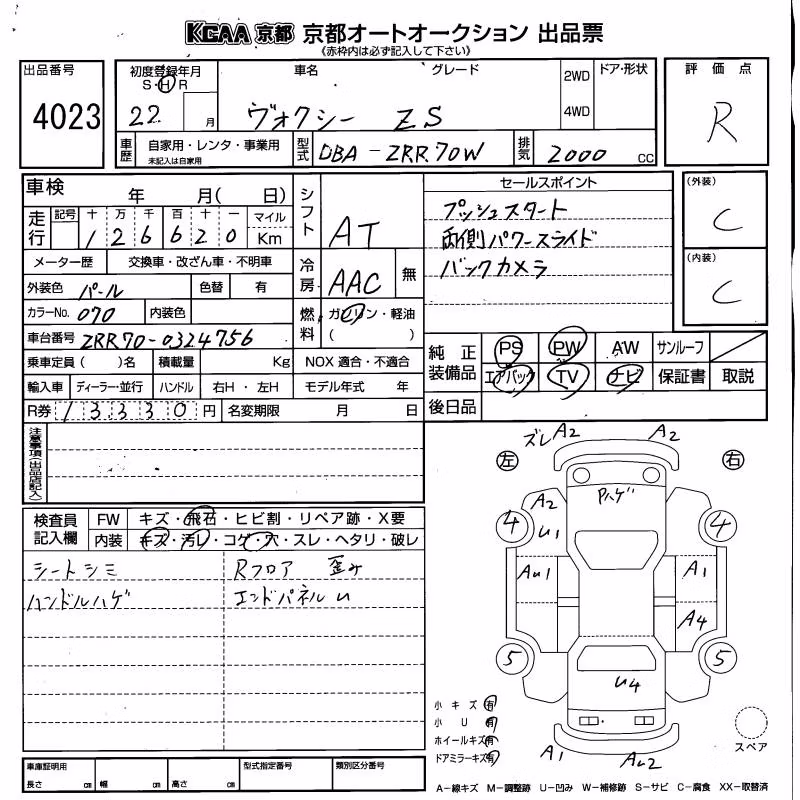 KCAA 京都 京都オートオークション 出品票
《赤枠内は必ず記入して下さい》
出品番号
4023
初度登録年月
S・H R
22 月
車名
グレード
ヴォクシー ZS
2WD
4WD
ドア・形状
評価点
R
車歴
自家用・レンタ・事業用
未記入は自家用
型式
DBA-ZRR70W
排気
2000 cc
車検
年 月( 日)
走行
記号 十 万 千 百 十 一 マイル
126620 Km
シフト
AT
セールスポイント
プッシュスタート
両側パワースライド
バックカメラ
(外装)
C
(内装)
C
メーター歴
交換車・改ざん車・不明車
冷房
AAC
無
外装色
パール
色替
有
カラーNo.
070
内装色
燃料
ガソリン・軽油
( )
車台番号
ZRR70-0324756
乗車定員( )名
積載量
Kg
NOX 適合・不適合
輸入車
ディーラー・並行
ハンドル
右H・左H
モデル年式 年
R券
13330円
名変期限
月 日
純正装備品
PS PW AW サンルーフ
エアバック TV ナビ 保証書 取説
後日品
注意事項(出品店記入)
検査員記入欄
FW
キズ・飛石・ヒビ割・リペア跡・X要
内装
キズ・汚レ・コゲ・穴・スレ・ヘタリ・破レ
シートシミ
Rフロア 歪み
ハンドルハゲ
エンドパネルU
ズレ A2
A2
左
右
Pハゲ
4
A2
U1
4
AU1
A1
A4
5
5
U4
小キズ 有
小 U 有
ホイールキズ 有
ドアミラーキズ 有
A1
AU2
スペア
A-線キズ M-調整跡 U-凹み W-補修跡 S-サビ C-腐食 XX-取替済
車庫証明用
長さ cm 幅 cm 高さ cm
型式指定番号
類別区分番号